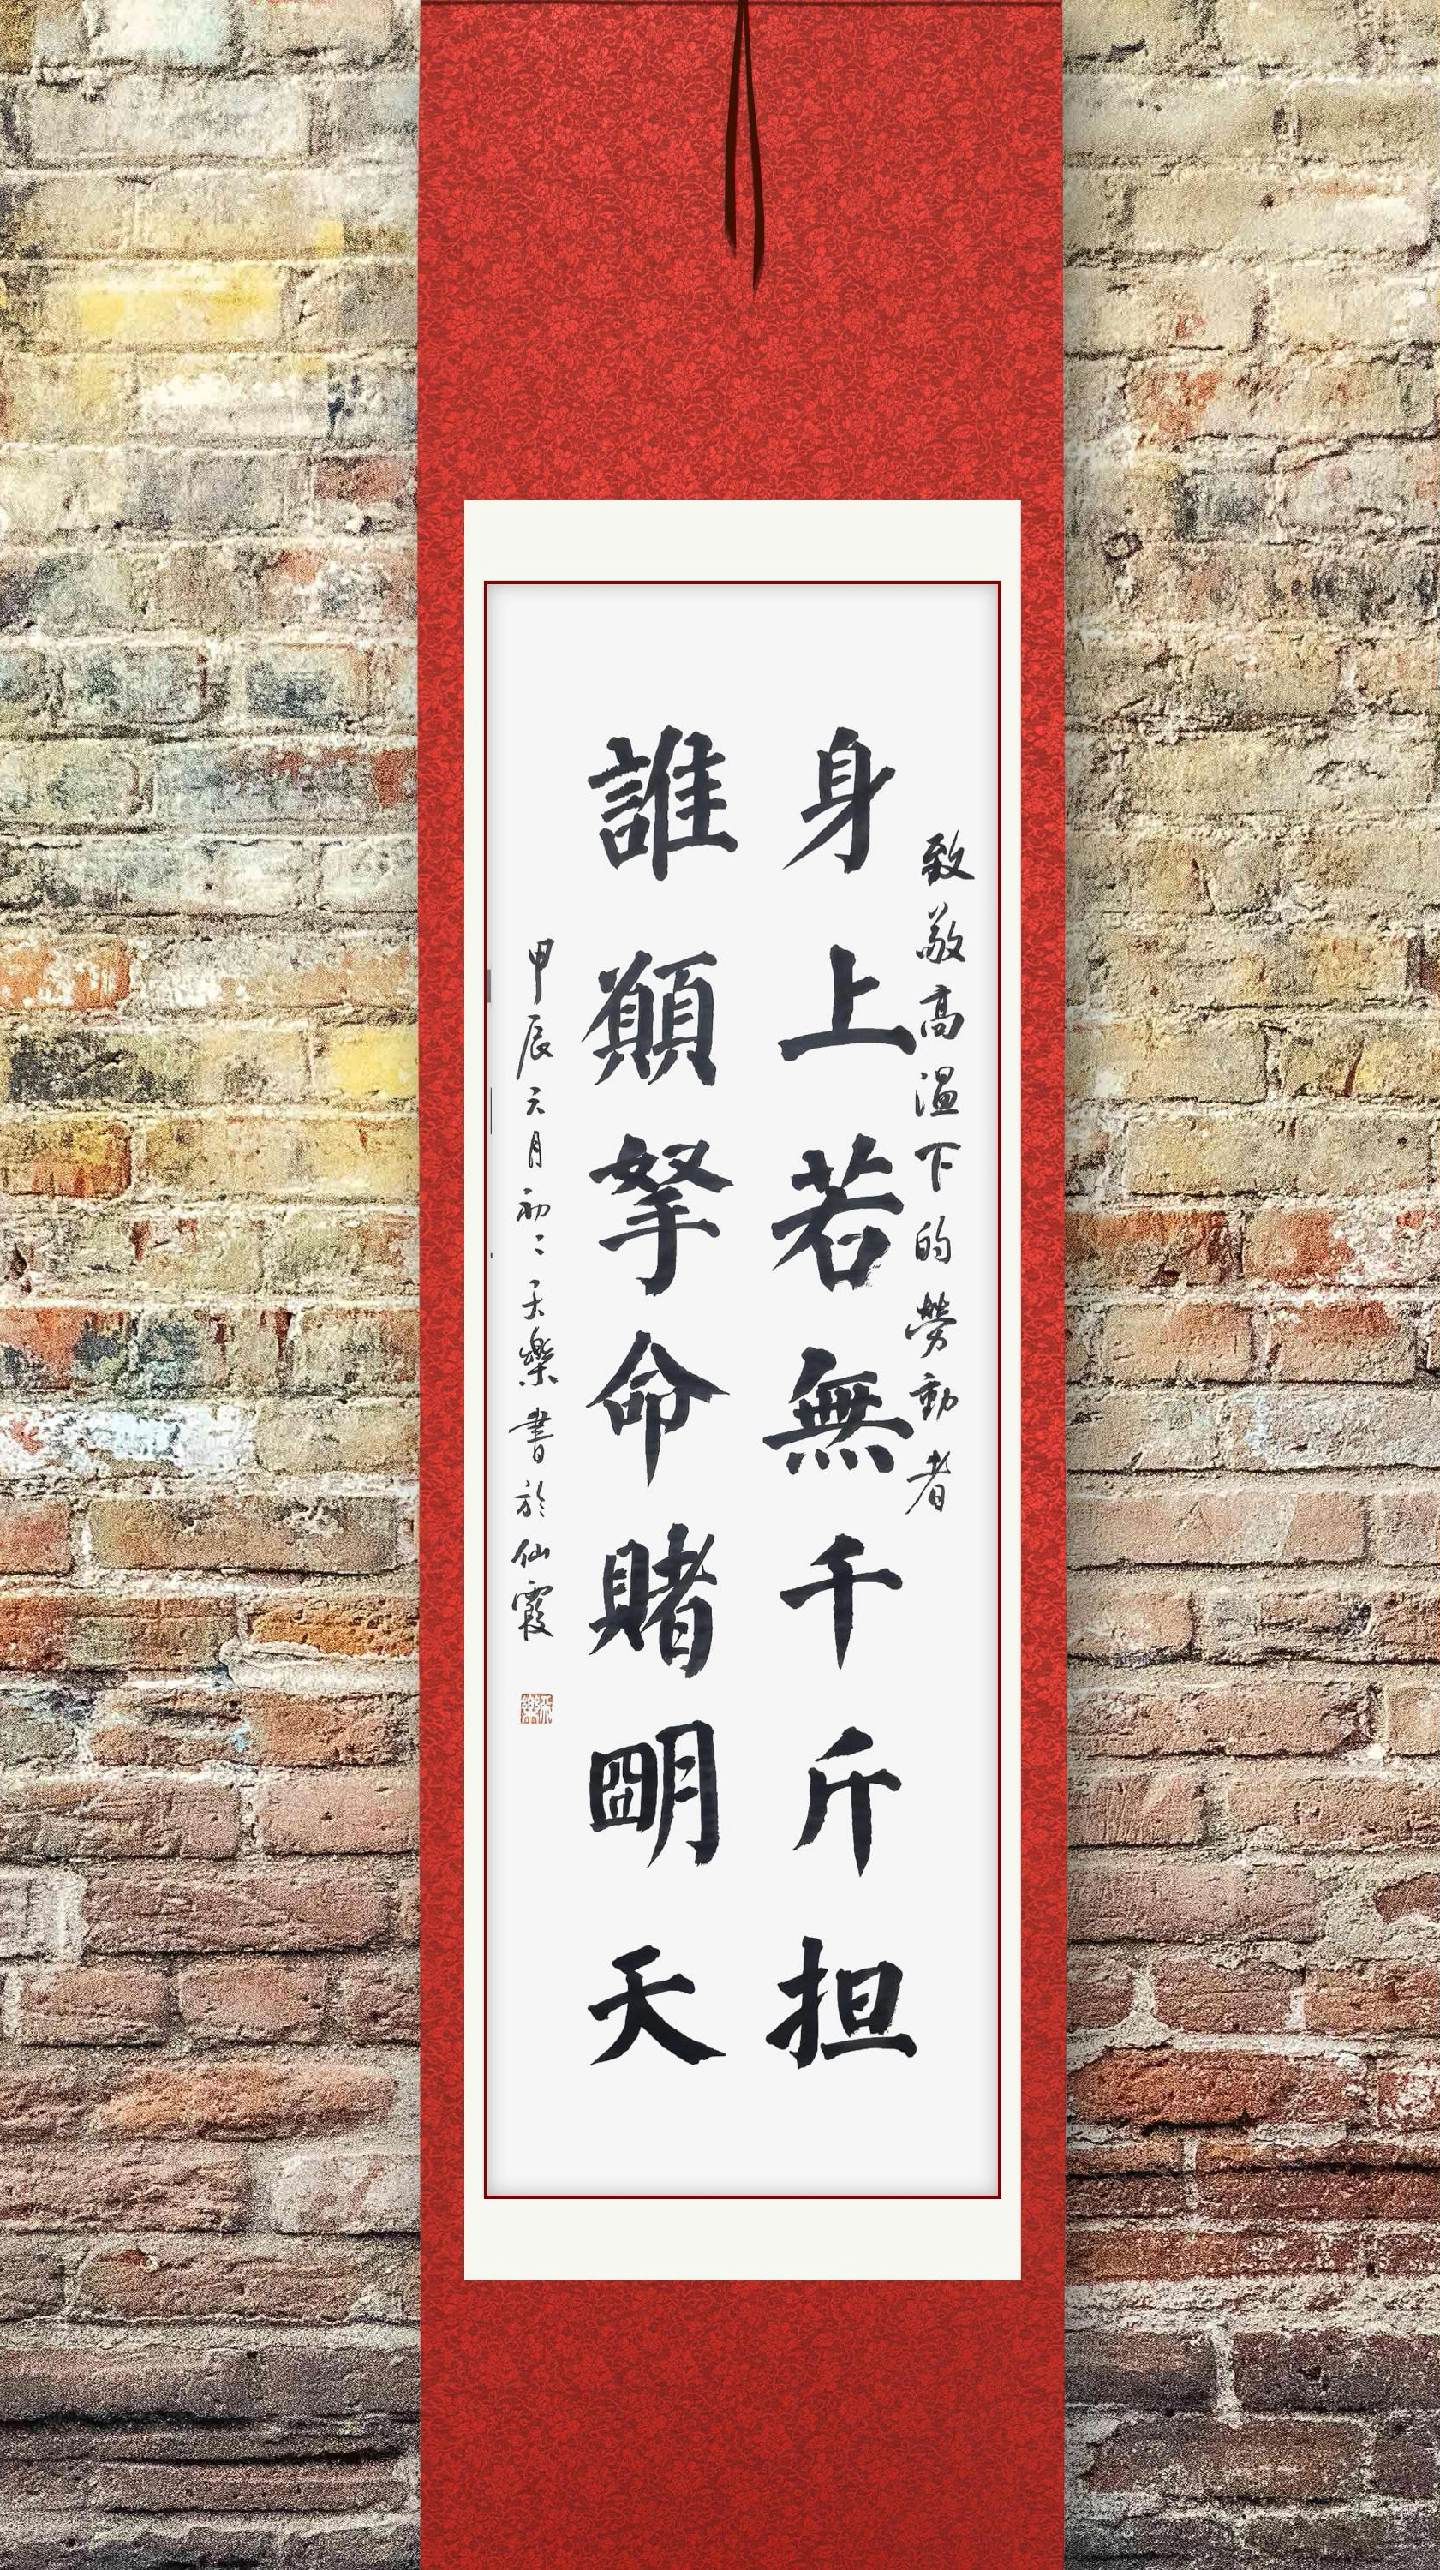 致敬高温下的勞動者
身上若無千斤担
誰願拏命賭朙天
甲辰六月初二天樂書於仙霞